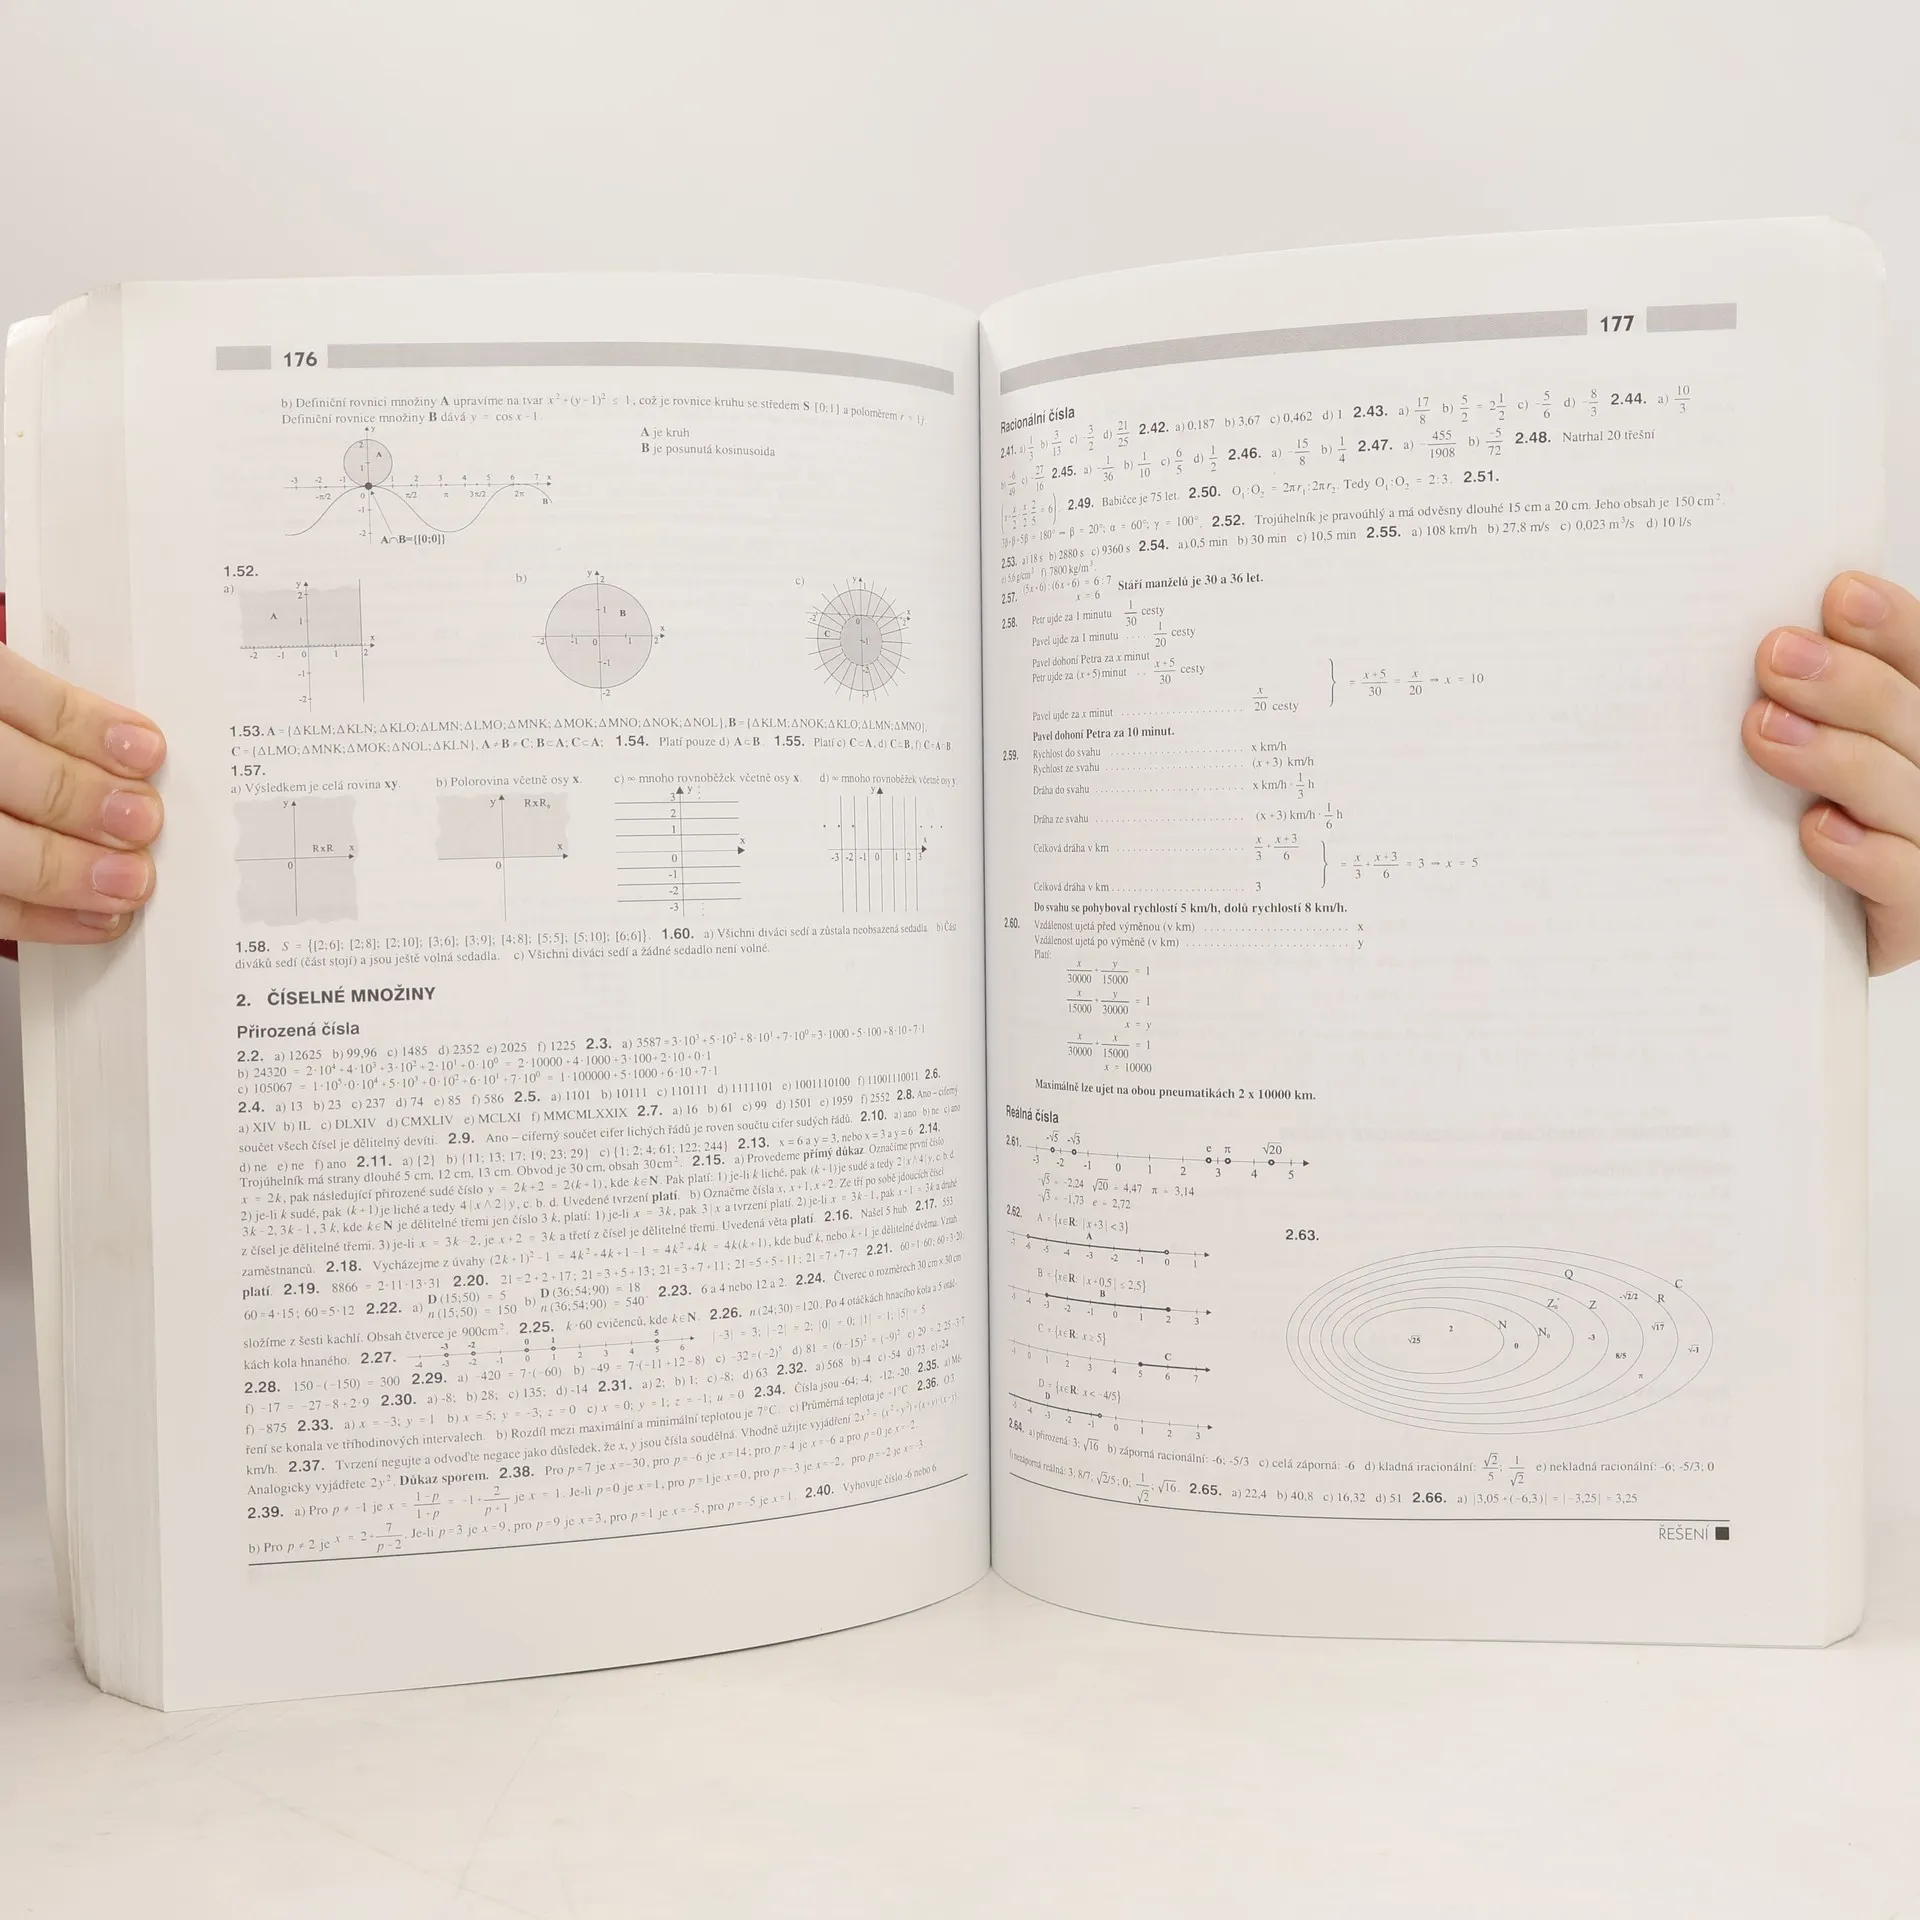 176
b) Definiční rovnici množiny A upravíme na tvar x²+(y-1)² ≤ 1, což je rovnice kruhu se středem S [0;1] a poloměrem r = 1j.
Definiční rovnice množiny B dává y = cos x-1.
A je kruh
B je posunutá kosinusoida
A∩B={[0;0]}
1.52.
a) b) c)
1.53. A = {ΔKLM;ΔKLN;ΔKLO;ΔLMN;ΔLMO;ΔMNK;ΔMOK;ΔMNO;ΔNOK;ΔNOL}, B = {ΔKLM;ΔNOK;ΔKLO;ΔLMN;ΔMNO},
C = {ΔLMO;ΔMNK;ΔMOK;ΔNOL;ΔKLN}, A ≠ B ≠ C; B⊂A; C⊂A; 1.54. Platí pouze d) A⊂B. 1.55. Platí c) C⊂A, d) C⊂B,
1.57.
a) Výsledkem je celá rovina xy. b) Polorovina včetně osy x. c) ∞ mnoho rovnoběžek včetně osy x. d) ∞ mnoho rovnoběžek včetně osy y.
RxR
RxR₀
1.58. S = {[2;6]; [2;8]; [2;10]; [3;6]; [3;9]; [4;8]; [5;5]; [5;10]; [6;6]}. 1.60. a) Všichni diváci sedí a zůstala neobsazená sedadla. b) Část
diváků sedí (část stojí) a jsou ještě volná sedadla. c) Všichni diváci sedí a žádné sedadlo není volné.
2. ČÍSELNÉ MNOŽINY
Přirozená čísla
2.2. a) 12625 b) 99,96 c) 1485 d) 2352 e) 2025 f) 1225 2.3. a) 3587=3·10³+5·10²+8·10¹+7·10⁰=3·1000+5·100+8·10+7·1
b) 24320 = 2·10⁴+4·10³+3·10²+2·10¹+0·10⁰ = 2·10000+4·1000+3·100+2·10+0·1
c) 105067 = 1·10⁵+0·10⁴+5·10³+0·10²+6·10¹+7·10⁰ = 1·100000+5·1000+6·10+7·1
2.4. a) 13 b) 23 c) 237 d) 74 e) 85 f) 586 2.5. a) 1101 b) 10111 c) 110111 d) 1111101 e) 1001110100 f) 11001110011 2.6.
a) XIV b) IL c) DLXIV d) CMXLIV e) MCLXI f) MMCMLXXIX 2.7. a) 16 b) 61 c) 99 d) 1501 e) 1959 f) 2552 2.8. Ano – ciferný
součet všech čísel je dělitelný devíti. 2.9. Ano – ciferný součet cifer lichých řádů je roven součtu cifer sudých řádů. 2.10. a) ano b) ne c) ano
d) ne e) ne f) ano 2.11. a) {2} b) {11; 13; 17; 19; 23; 29} c) {1; 2; 4; 61; 122; 244} 2.13. x = 6 a y = 3, nebo x = 3 a y = 6 2.14.
Trojúhelník má strany dlouhé 5 cm, 12 cm, 13 cm. Obvod je 30 cm, obsah 30cm². 2.15. a) Provedeme přímý důkaz. Označíme první číslo
x = 2k, pak následující přirozené sudé číslo y = 2k+2 = 2(k+1), kde k∈N. Pak platí: 1) je-li k liché, pak (k+1)je sudé a tedy 2|x∧4|y, c. b. d.
2) je-li k sudé, pak (k+1)je liché a tedy 4|x∧2|y, c. b. d. Uvedené tvrzení platí. b) Označme čísla x, x+1, x+2. Ze tří po sobě jdoucích čísel
3k-2, 3k-1, 3k, kde k∈N je dělitelné třemi jen číslo 3k, platí: 1) je-li x = 3k, pak 3|x a tvrzení platí. 2) je-li x = 3k-1, pak x+1 = 3k a druhé
z čísel je dělitelné třemi. 3) je-li x = 3k-2, je x+2 = 3k a třetí z čísel je dělitelné třemi. Uvedená věta platí. 2.16. Našel 5 hub. 2.17. 553
zaměstnanců. 2.18. Vycházejme z úvahy (2k+1)²-1 = 4k²+4k+1-1 = 4k²+4k = 4k(k+1), kde buď k, nebo k+1 je dělitelné dvěma. Vztah
platí. 2.19. 8866 = 2·11·13·31 2.20. 21=2+2+17; 21=3+5+13; 21=3+7+11; 21=5+5+11; 21=7+7+7 2.21. 60=1·60; 60=3·20;
60=4·15; 60=5·12 2.22. a) D(15;50) = 5 n(15;50) = 150 b) D(36;54;90) = 18 n(36;54;90) = 540 2.23. 6 a 4 nebo 12 a 2. 2.24. Čtverec o rozměrech 30 cm x 30 cm
složíme z šesti kachlí. Obsah čtverce je 900cm². 2.25. k·60 cvičenců, kde k∈N. 2.26. n(24;30)=120. Po 4 otáčkách hnacího kola a 5 otáč-
kách kola hnaného. 2.27. |-3| = 3; |-2| = 2; |0| = 0; |1| = 1; |5| = 5
2.28. 150-(-150) = 300 2.29. a) -420 = 7·(-60) b) -49 = 7·(-11+12-8) c) -32=(-2)⁵ d) 81 = (6-15)² = (-9)²
f) -17 = -27-8+2·9 2.30. a) -8; b) 28; c) 135; d) -14 2.31. a) 2; b) 1; c) -8; d) 63 2.32. a) 568 b) -4 c) -54 d) 73 e) -24
f) -875 2.33. a) x = -3; y = 1 b) x = 5; y = -3; z = 0 c) x = 0; y = 1; z = -1; u = 0 2.34. Čísla jsou -64; -4; -12; -20. 2.35.
ření se konala ve tříhodinových intervalech. b) Rozdíl mezi maximální a minimální teplotou je 7°C. c) Průměrná teplota je -1°C 2.36.
km/h. 2.37. Tvrzení negujte a odvoďte negace jako důsledek, že x, y jsou čísla soudělná. Vhodně užijte vyjádření
Analogicky vyjádřete 2y². Důkaz sporem. 2.38. Pro p=7 je x=-30, pro p=-6 je x=14; pro p=4 je x=-6 a pro p=0 je x=-2.
2.39. a) Pro p ≠ -1 je x = (1-p)/(1+p) = -1+2/(p+1) je x = 1. Je-li p=0 je x=1, pro p=1je x=0, pro p=-3 je x=-2, pro p=-2 je x=-3.
b) Pro p ≠ 2 je x = 2+7/(p-2). Je-li p=3 je x=9, pro p=9 je x=3, pro p=1 je x=-5, pro p=-5 je x=1. 2.40. Vyhovuje číslo -6 nebo 6
177
Racionální čísla
2.41. a) 1/3 b) 3/13 c) -3/2 d) 21/25 2.42. a) 0,187 b) 3,67 c) 0,462 d) 1 2.43. a) 17/8 b) 5/2 = 2 1/2 c) -5/6 d) -8/3 2.44. a) 10/3
b) -6/49 c) -27/16 2.45. a) -1/36 b) 1/10 c) 6/5 d) 1/2 2.46. a) -15/8 b) 1/4 2.47. a) -455/1908 b) -5/72 2.48. Natrhal 20 třešní
2.49. Babičce je 75 let. 2.50. O₁:O₂ = 2πr₁:2πr₂. Tedy O₁:O₂ = 2:3. 2.51.
= 180° → β = 20°; α = 60°; γ = 100°. 2.52. Trojúhelník je pravoúhlý a má odvěsny dlouhé 15 cm a 20 cm. Jeho obsah je 150 cm².
2.53. a) 18 s b) 2880 s c) 9360 s 2.54. a) 0,5 min b) 30 min c) 10,5 min 2.55. a) 108 km/h b) 27,8 m/s c) 0,023 m³/s d) 10 l/s
e) 5,6 g/cm³ f) 7800 kg/m³.
2.57. (5x+6):(6x+6) = 6:7 Stáří manželů je 30 a 36 let.
x = 6
2.58. Petr ujde za 1 minutu 1/30 cesty
Pavel ujde za 1 minutu .... 1/20 cesty
Pavel dohoní Petra za x minut
Petr ujde za (x+5)minut .. (x+5)/30 cesty
= (x+5)/30 = x/20 → x = 10
Pavel ujde za x minut .................... x/20 cesty
Pavel dohoní Petra za 10 minut.
2.59. Rychlost do svahu ...................... x km/h
Rychlost ze svahu ....................... (x+3) km/h
Dráha do svahu ......................... x km/h · 1/3 h
Dráha ze svahu ......................... (x+3) km/h · 1/6 h
Celková dráha v km ...................... x/3 + (x+3)/6
= x/3 + (x+3)/6 = 3 → x = 5
Celková dráha v km ...................... 3
Do svahu se pohyboval rychlostí 5 km/h, dolů rychlostí 8 km/h.
2.60. Vzdálenost ujetá před výměnou (v km) ........................ x
Vzdálenost ujetá po výměně (v km) ........................... y
Platí:
x/30000 + y/15000 = 1
x/15000 + y/30000 = 1
x = y
x/30000 + x/15000 = 1
x = 10000
Maximálně lze ujet na obou pneumatikách 2 x 10000 km.
Reálná čísla
2.61. -√5 -√3 e π √20
-3 -2 -1 0 1 2 3 4 5
-√5 = -2,24 √20 = 4,47 π = 3,14
-√3 = -1,73 e = 2,72
2.62. A = {x∈R: |x+3| < 3}
A
-7 -6 -5 -4 -3 -2 -1 0 1
B = {x∈R: |x+0,5| ≤ 2,5}
B
C = {x∈R: x ≥ 5}
C
D = {x∈R: x < -4/5}
D
2.63.
√25 2 N 0 N₀ Z₀⁻ -3 Z Q 8/5 -√2/2 R √17 π C √-1
2.64. a) přirozená: 3; √16 b) záporná racionální: -6; -5/3 c) celá záporná: -6 d) kladná iracionální: √2/5; 1/√2 e) nekladná racionální: -6; -5/3; 0
f) nezáporná reálná: 3; 8/7; √2/5; 0; 1/√2; √16. 2.65. a) 22,4 b) 40,8 c) 16,32 d) 51 2.66. a) |3,05+(-6,3)| = |-3,25| = 3,25
ŘEŠENÍ